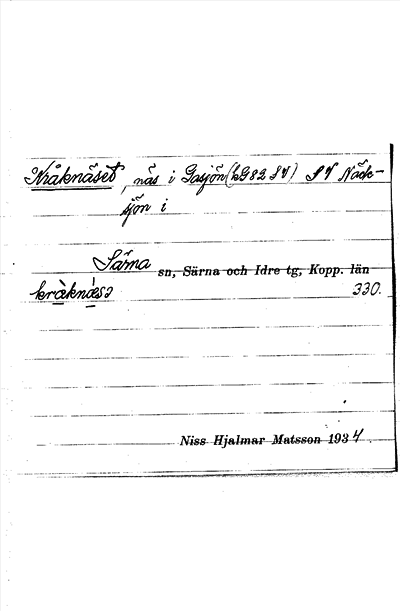 Kråknäset, näs i Gasjön (kG82 SV) SV Näck-
sjön i
Särna sn, Särna och Idre tg, Kopp. län
kràknásɔ 330.
Niss Hjalmar Matsson 1934.